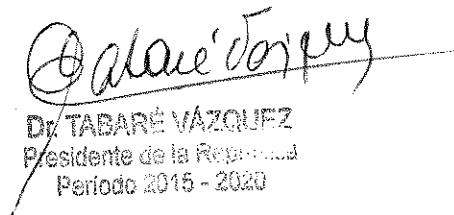 Tabaré Vázquez
Dr. TABARÉ VÁZQUEZ
Presidente de la República
Período 2015 - 2020